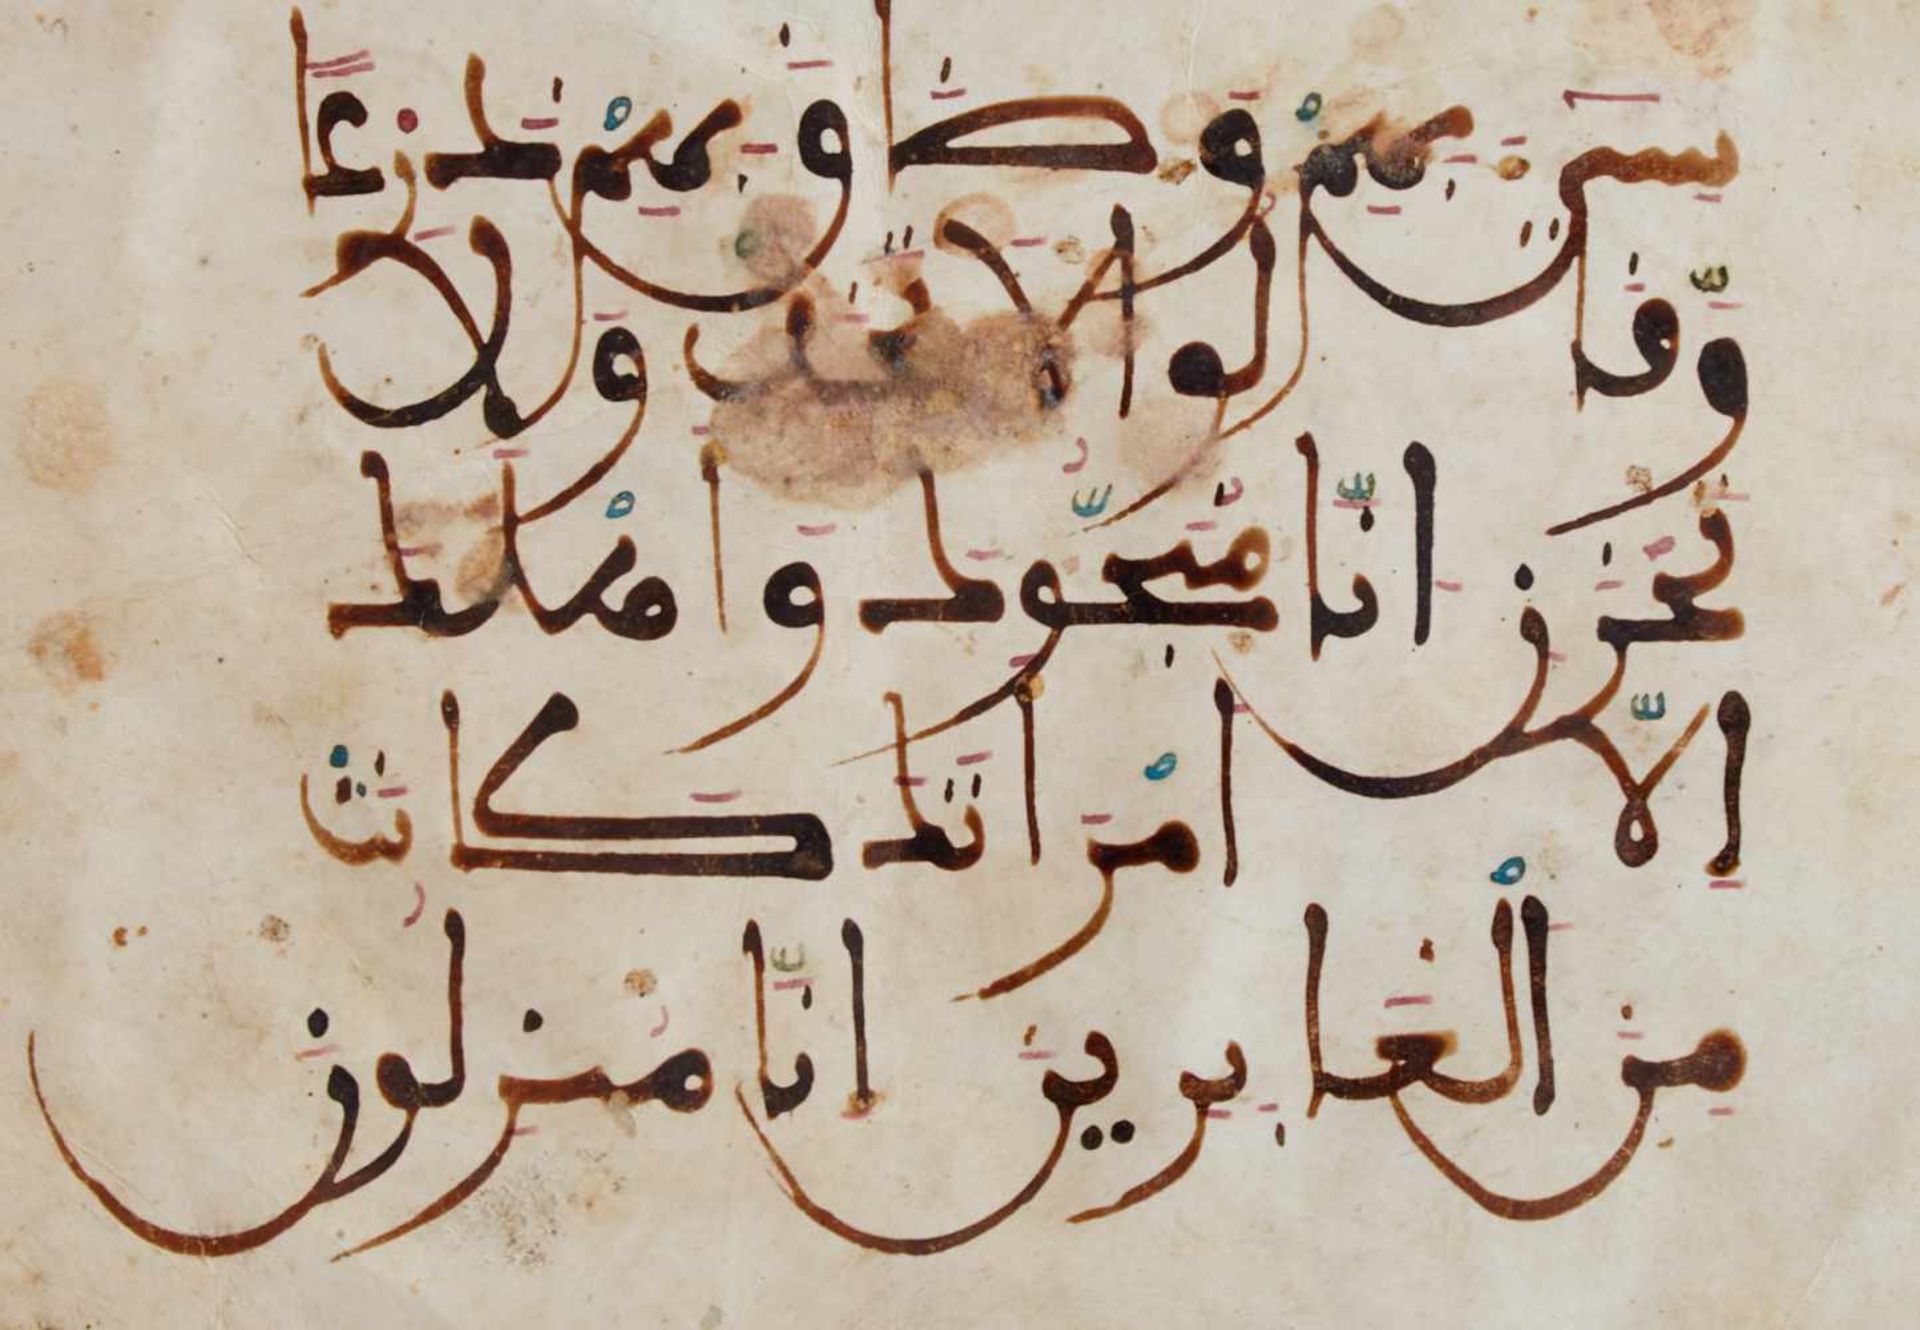 سِيٓءَ بِهِمْ وَضَاقَ بِهِمْ ذَرْعًا
وَقَالُوا لَا تَخَفْ وَلَا
تَحْزَنْ إِنَّا مُنَجُّوكَ وَأَهْلَكَ
إِلَّا امْرَأَتَكَ كَانَتْ
مِنَ الْغَابِرِينَ إِنَّا مُنْزِلُونَ